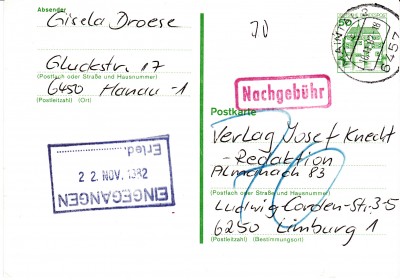 Absender
Gisela Droese
Gluckstr. 17
(Postfach oder Straße und Hausnummer)
6450 Hanau -1
(Postleitzahl) (Ort)
70
50
6457
Nachgebühr
Postkarte
Verlag Josef Knecht
- Redaktion
Almanach 83
(Postfach oder Straße und Hausnummer)
Ludwig-Corden-Str. 3-5
6250 Limburg 1
(Postleitzahl) (Bestimmungsort)
70
EINGEGANGEN
2 2. NOV. 1982
Erled.